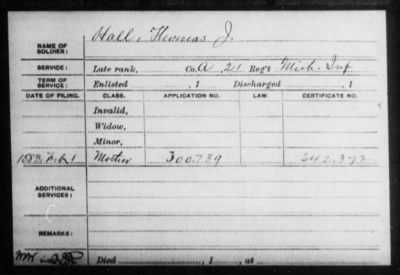 NAME OF SOLDIER: Hall, Thomas J.
SERVICE: Late rank, Co. A, 21 Reg't Mich. Inf.
TERM OF SERVICE: Enlisted , 1 Discharged , 1
DATE OF FILING. CLASS. APPLICATION NO. LAW. CERTIFICATE NO.
Invalid,
Widow,
Minor,
1883, Feb 1 Mother 300.739 242.372
ADDITIONAL SERVICES:
REMARKS:
Died , 1 , at